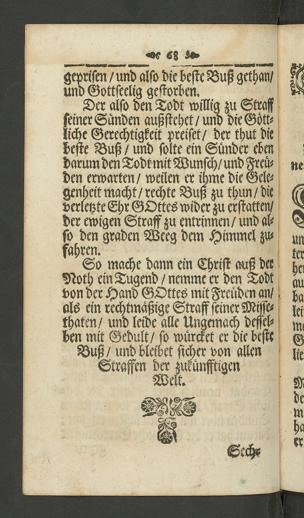 68
geprisen / und also die beste Buß gethan /
und Gottseelig gestorben.
Der also den Todt willig zu Straff
seiner Sünden außstehet / und die Gött-
liche Gerechtigkeit preiset / der thut die
beste Buß / und solte ein Sünder eben
darum den Todt mit Wunsch / und Freü-
den erwarten / weilen er ihme die Gele-
genheit macht / rechte Buß zu thun / die
verletzte Ehr GOttes wider zu erstatten /
der ewigen Straff zu entrinnen / und al-
so den graden Weeg dem Himmel zu-
fahren.
So mache dann ein Christ auß der
Noth ein Tugend / nemme er den Todt
von der Hand GOttes mit Freüden an /
als ein rechtmäßige Straff seiner Misse-
thaten / und leide alle Ungemach dessel-
ben mit Gedult / so würcket er die beste
Buß / und bleibet sicher von allen
Straffen der zukünfftigen
Welt.
Sech-